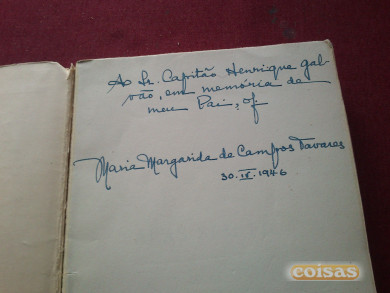 Ao Sr. Capitão Henrique gal-
vão, em memória de
meu Pai, of.
Maria Margarida de Campos Tavares
30.IX.1946
coisas